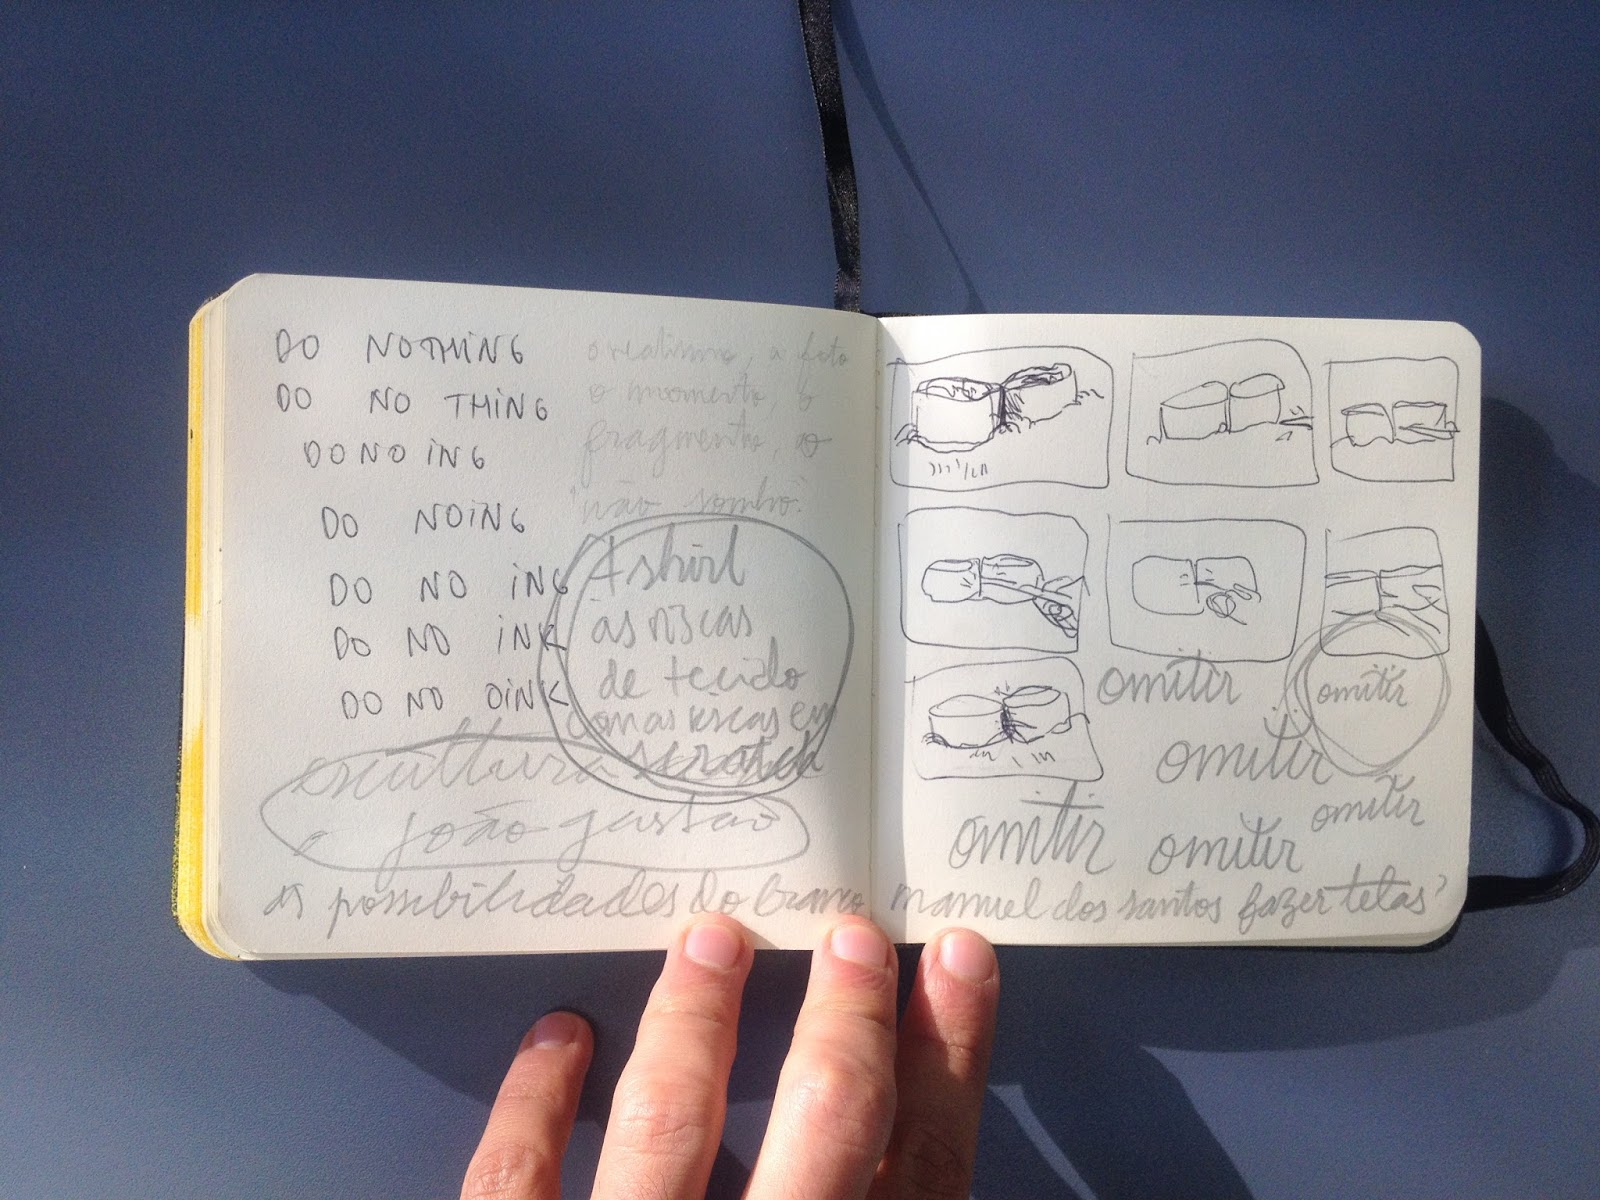 DO NOTHING
DO NO THING
DO NO ING
DO NOING
DO NO ING
DO NO INK
DO NO OINK
o realismo, a foto
o momento, o
fragmento, o
"não sonho".
t shirt
às riscas
de tecido
com as riscas em
scratch
escultura
o joão gastão
as possibilidades do branco
omitir
omitir
omitir
omitir
omitir
omitir
manuel dos santos fazer telas?